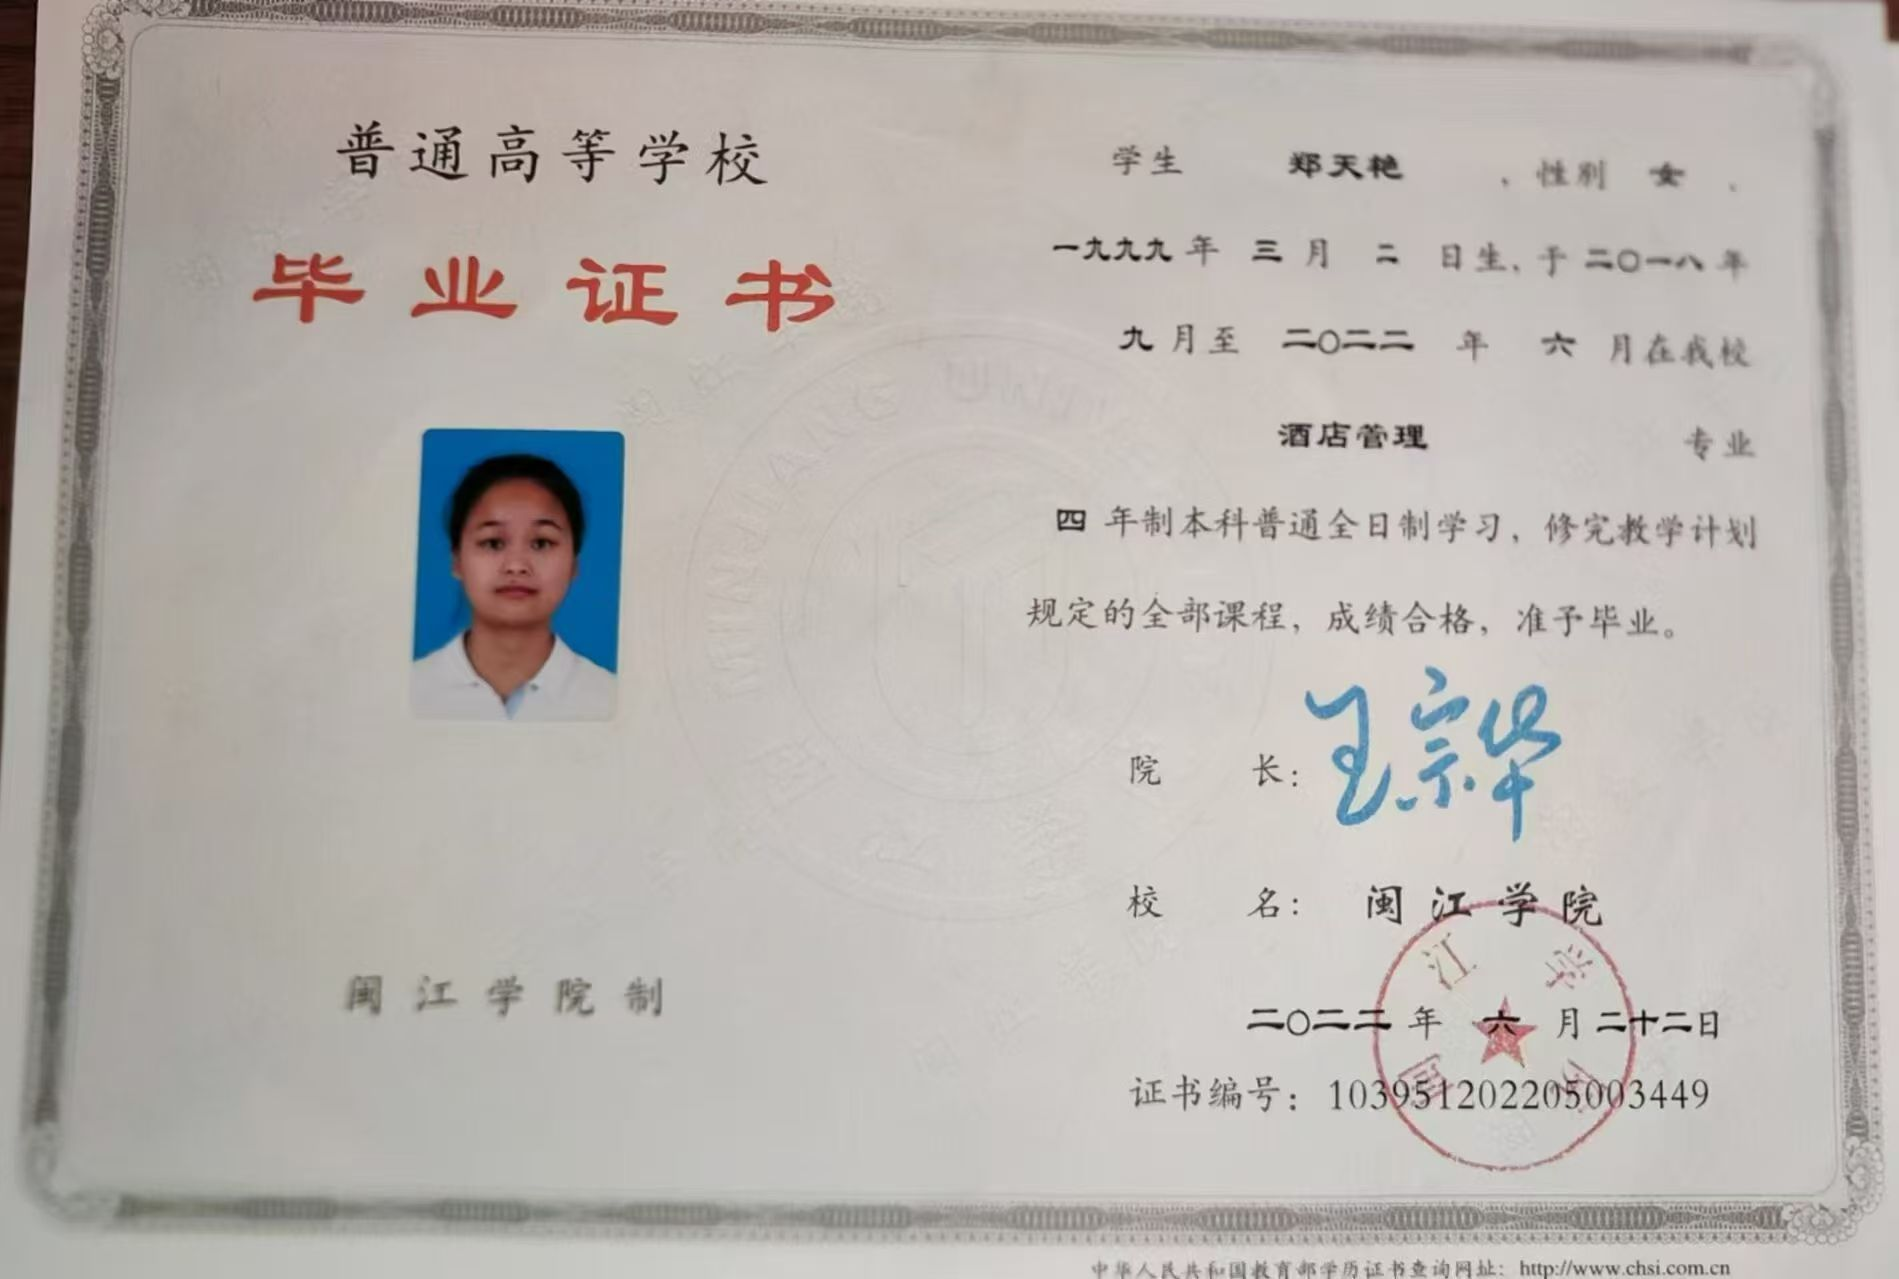 普通高等学校
毕业证书
闽江学院制
学生 郑天艳 ，性别 女 ，
一九九九年 三月 二 日生，于二〇一八年
九月至 二〇二二 年 六 月在我校
酒店管理 专业
四 年制本科普通全日制学习，修完教学计划
规定的全部课程，成绩合格，准予毕业。
院 长：王宗华
校 名：闽江学院
闽江学院
二〇二二年 六 月二十二日
证书编号：103951202205003449
中华人民共和国教育部学历证书查询网址：http://www.chsi.com.cn
MINJIANG UNIVERSITY